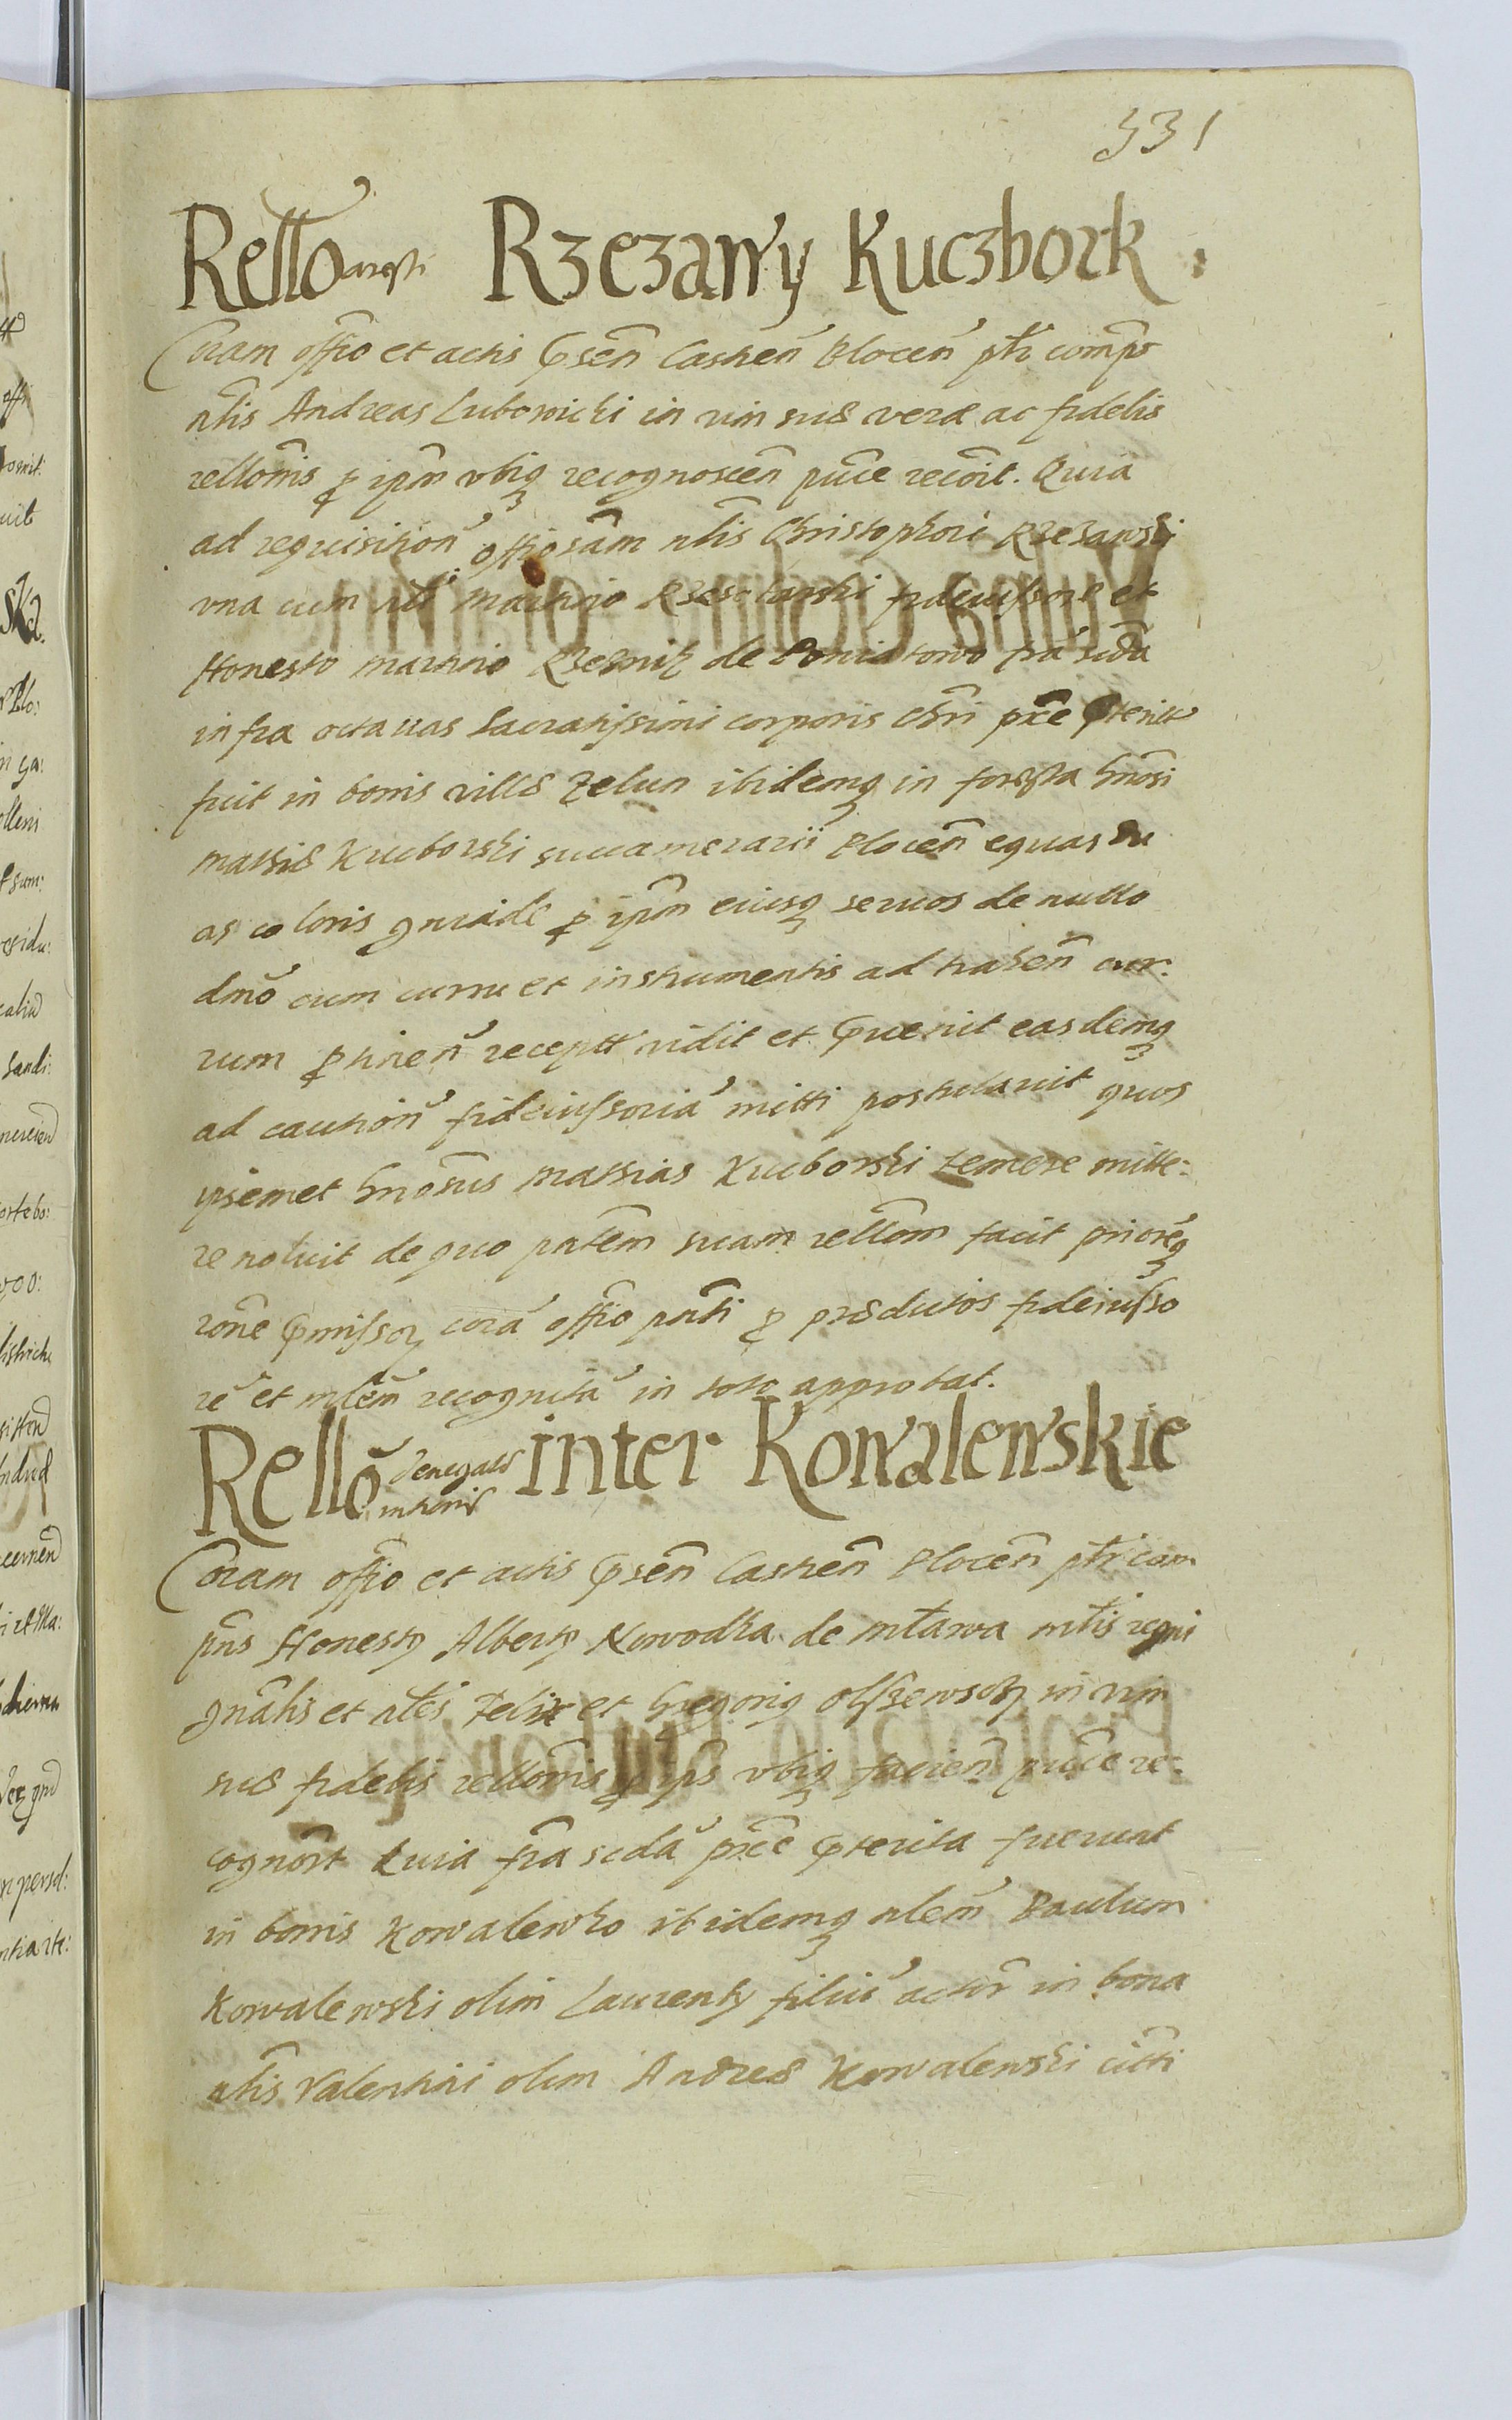 331
Rello aresti Rzezawy Kuczbork
Coram offio et actis psen Castren Plocen ptr compr
nlis Andreas Lubowicki in vim suæ veræ ac fidelis
rellonis p ipm vbiq recognoscen puce recoit. Quia
ad requisition offiosam nlis Christophori Rzezawski
vna cum nli Martino fideiussore et
Honesto Martino Rzeznik de Poniatowo fra scda
infra octauas Sacratissimi corporis Chri pxe pterit
fuit in bonis villæ Zelun ibidemq in foresta Gnosi
Mathiæ Kucborski succamerarii Plocen equas du
as coloris gniade p ipm eiusq seruos de nullo
dmo cum curru et instrumentis ad trahen cur:
rum ptinen receptt vidit et puenit easdemq
ad caution fideiussoria mitti postulauit quos
ipsemet Gnosus Mathias Kucborski temere mitte:
re noluit de quo pntem suam rellom facit prioreq
rone pmissor cora offio pnti p prædictos fideiusso
re et mlem recognita in toto approbat.
Rello denegatæ intromis inter Kowalewskie
Coram offio et actis psen Castren Plocen ptr com
pns Honesty Alberty Nowodka de Mlawa mtis regni
gnalis et nles Felix et Gregoriq Olszewscy in vim
suæ fidelis rellonis p ips vbiq facien puce re:
cognort Quia fra scda pxe pterita fuerunt
in bonis Kowalewko ibidemq nlem Paulum
Kowalewski olim Laurenty filiu actor in bona
nlis Valentini olim Andreæ Kowalewski citti